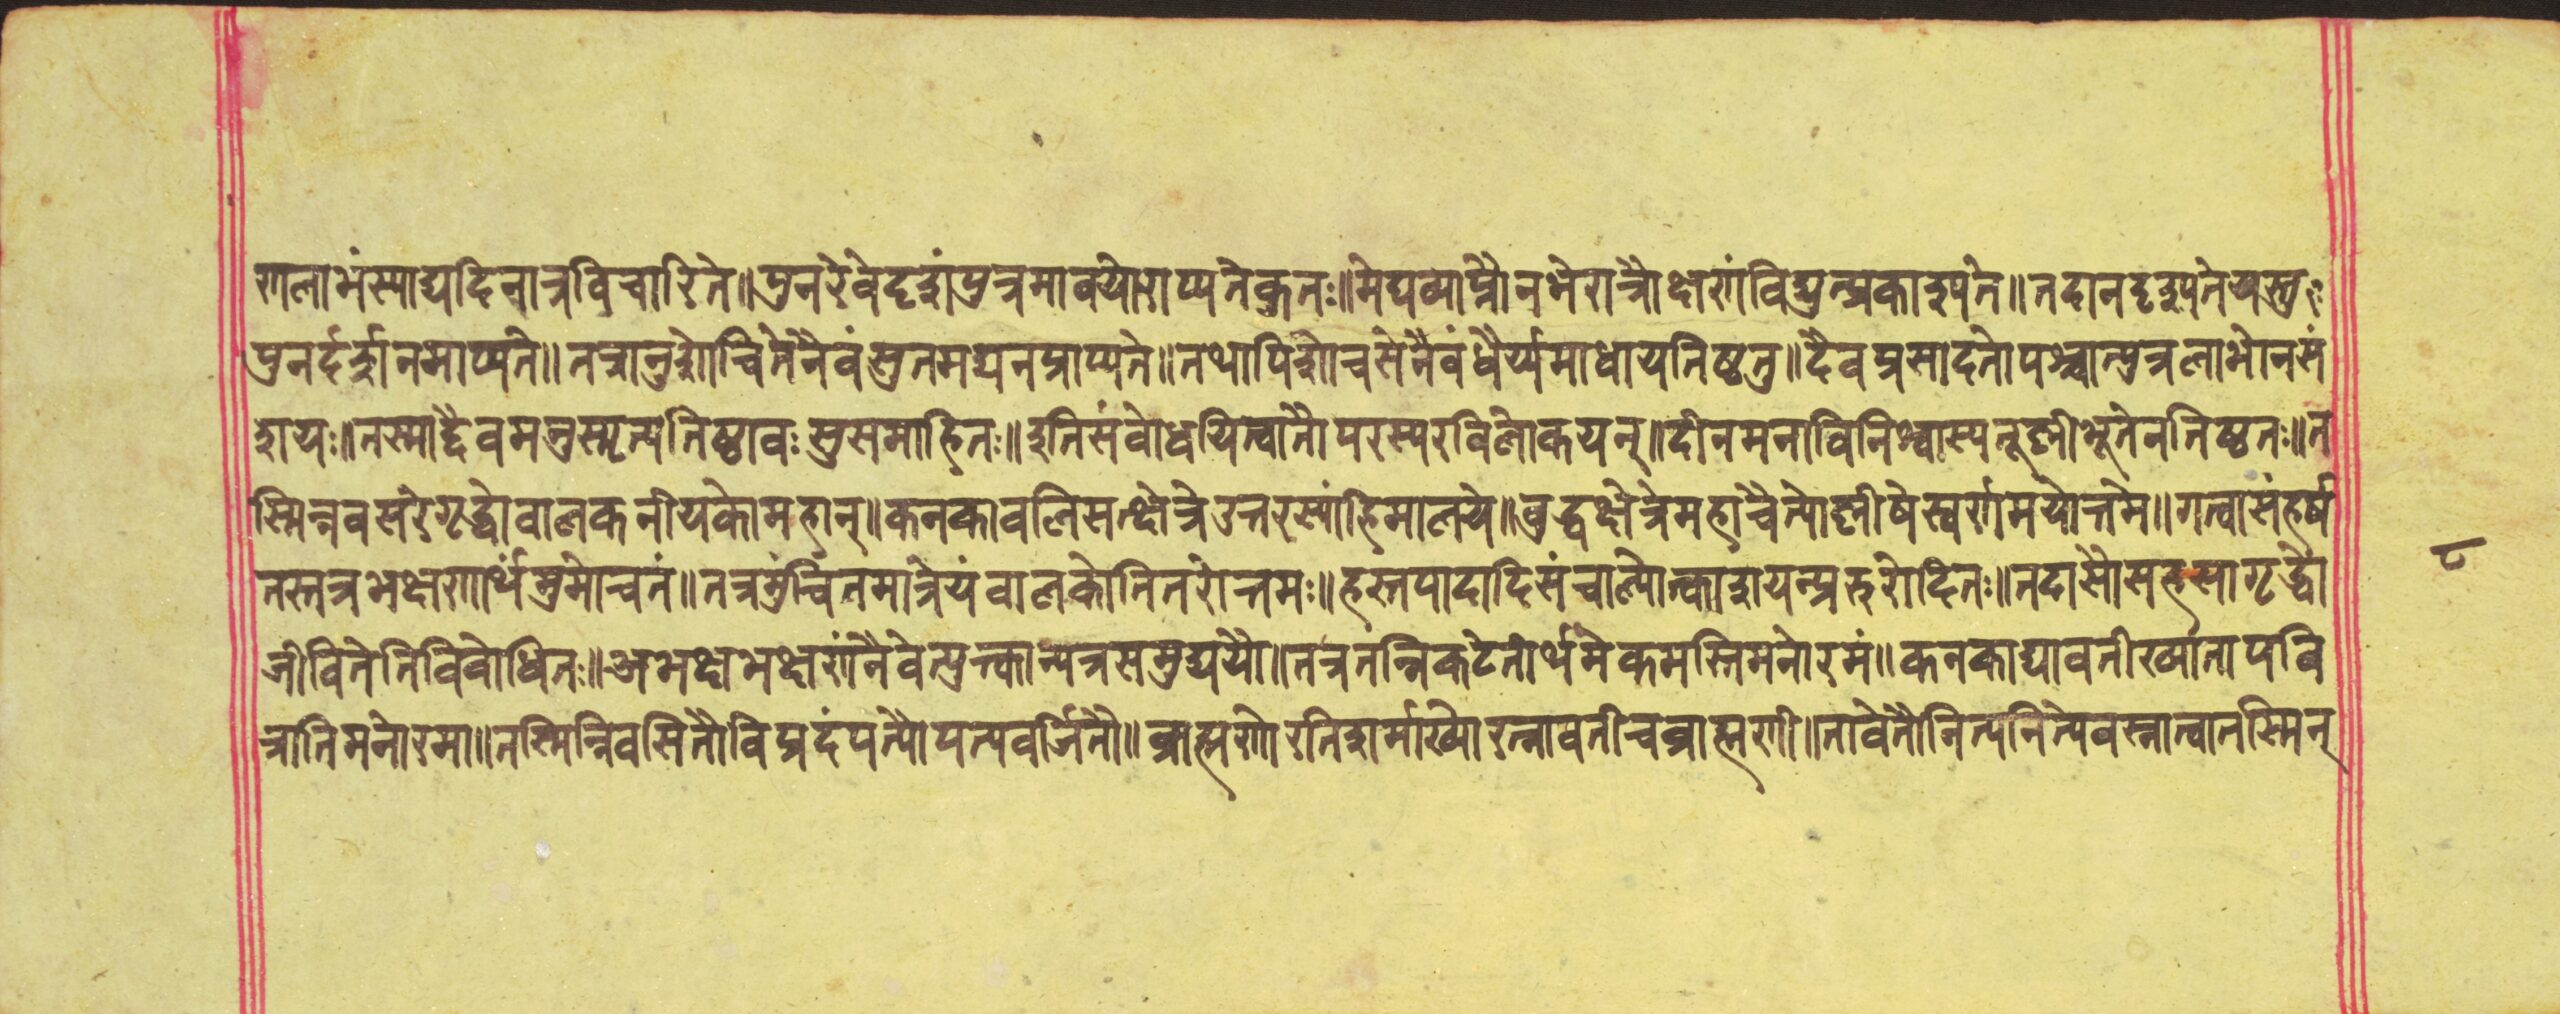 णलाभंस्याद्यदिनात्रविचारिते॥पुनरेवेदृशंपुत्रमावयोराप्यतेकुतः॥मेघव्याप्तौनभेरात्रौक्षणंविद्युत्प्रकाशते॥तदानदृश्यतेयस्तु
पुनर्दर्शनमाप्यते॥तत्रानुशोचितेनैवंसुतमद्यनप्राप्यते॥तथापिशोचसेनैवंधैर्य्यमाधायतिष्ठतु॥दैवप्रसादतोपश्चात्पुत्रलाभोनसं
शयः॥तस्माद्दैवमनुस्मृत्यतिष्ठावःसुसमाहितः॥इतिसंवोधयित्वातौपरस्परविलोकयन्॥दीनमनाविनिश्वास्यतूष्णीभूतेनतिष्ठतः॥त
स्मिन्नवसरेगृद्धोवालकनीयकोमहान्॥कनकावलिसत्क्षेत्रेउत्तरस्यांहिमालये॥वुद्धक्षेत्रेमहाचैत्योष्णीषेस्वर्णमयोत्तमे॥गत्वासंहर्ष
तस्तत्रभक्षणार्थंमुमोचतं॥तत्रमुंचितमात्रेयंवालकोतितरोत्तमः॥हस्तपादादिसंचाल्योत्काशयन्प्ररुरोदितः॥तदासौसहसागृद्धो
जीवितेतिविवोधितः॥अभक्षभक्षणंनैवेत्युत्क्तान्यत्रसमुद्ययौ॥तत्रतन्निकटेतीर्थमेकमस्तिमनोरमं॥कनकाद्यावतीख्यातापवि
त्रातिमनोरमा॥तस्मिन्निवसितौविप्रदंपत्यौपत्यवर्जितौ॥व्राह्मणोरतिशर्माख्योरत्नावतीचव्राह्मणी॥तावेतौनित्यनित्येवस्नात्वातस्मिन्
८